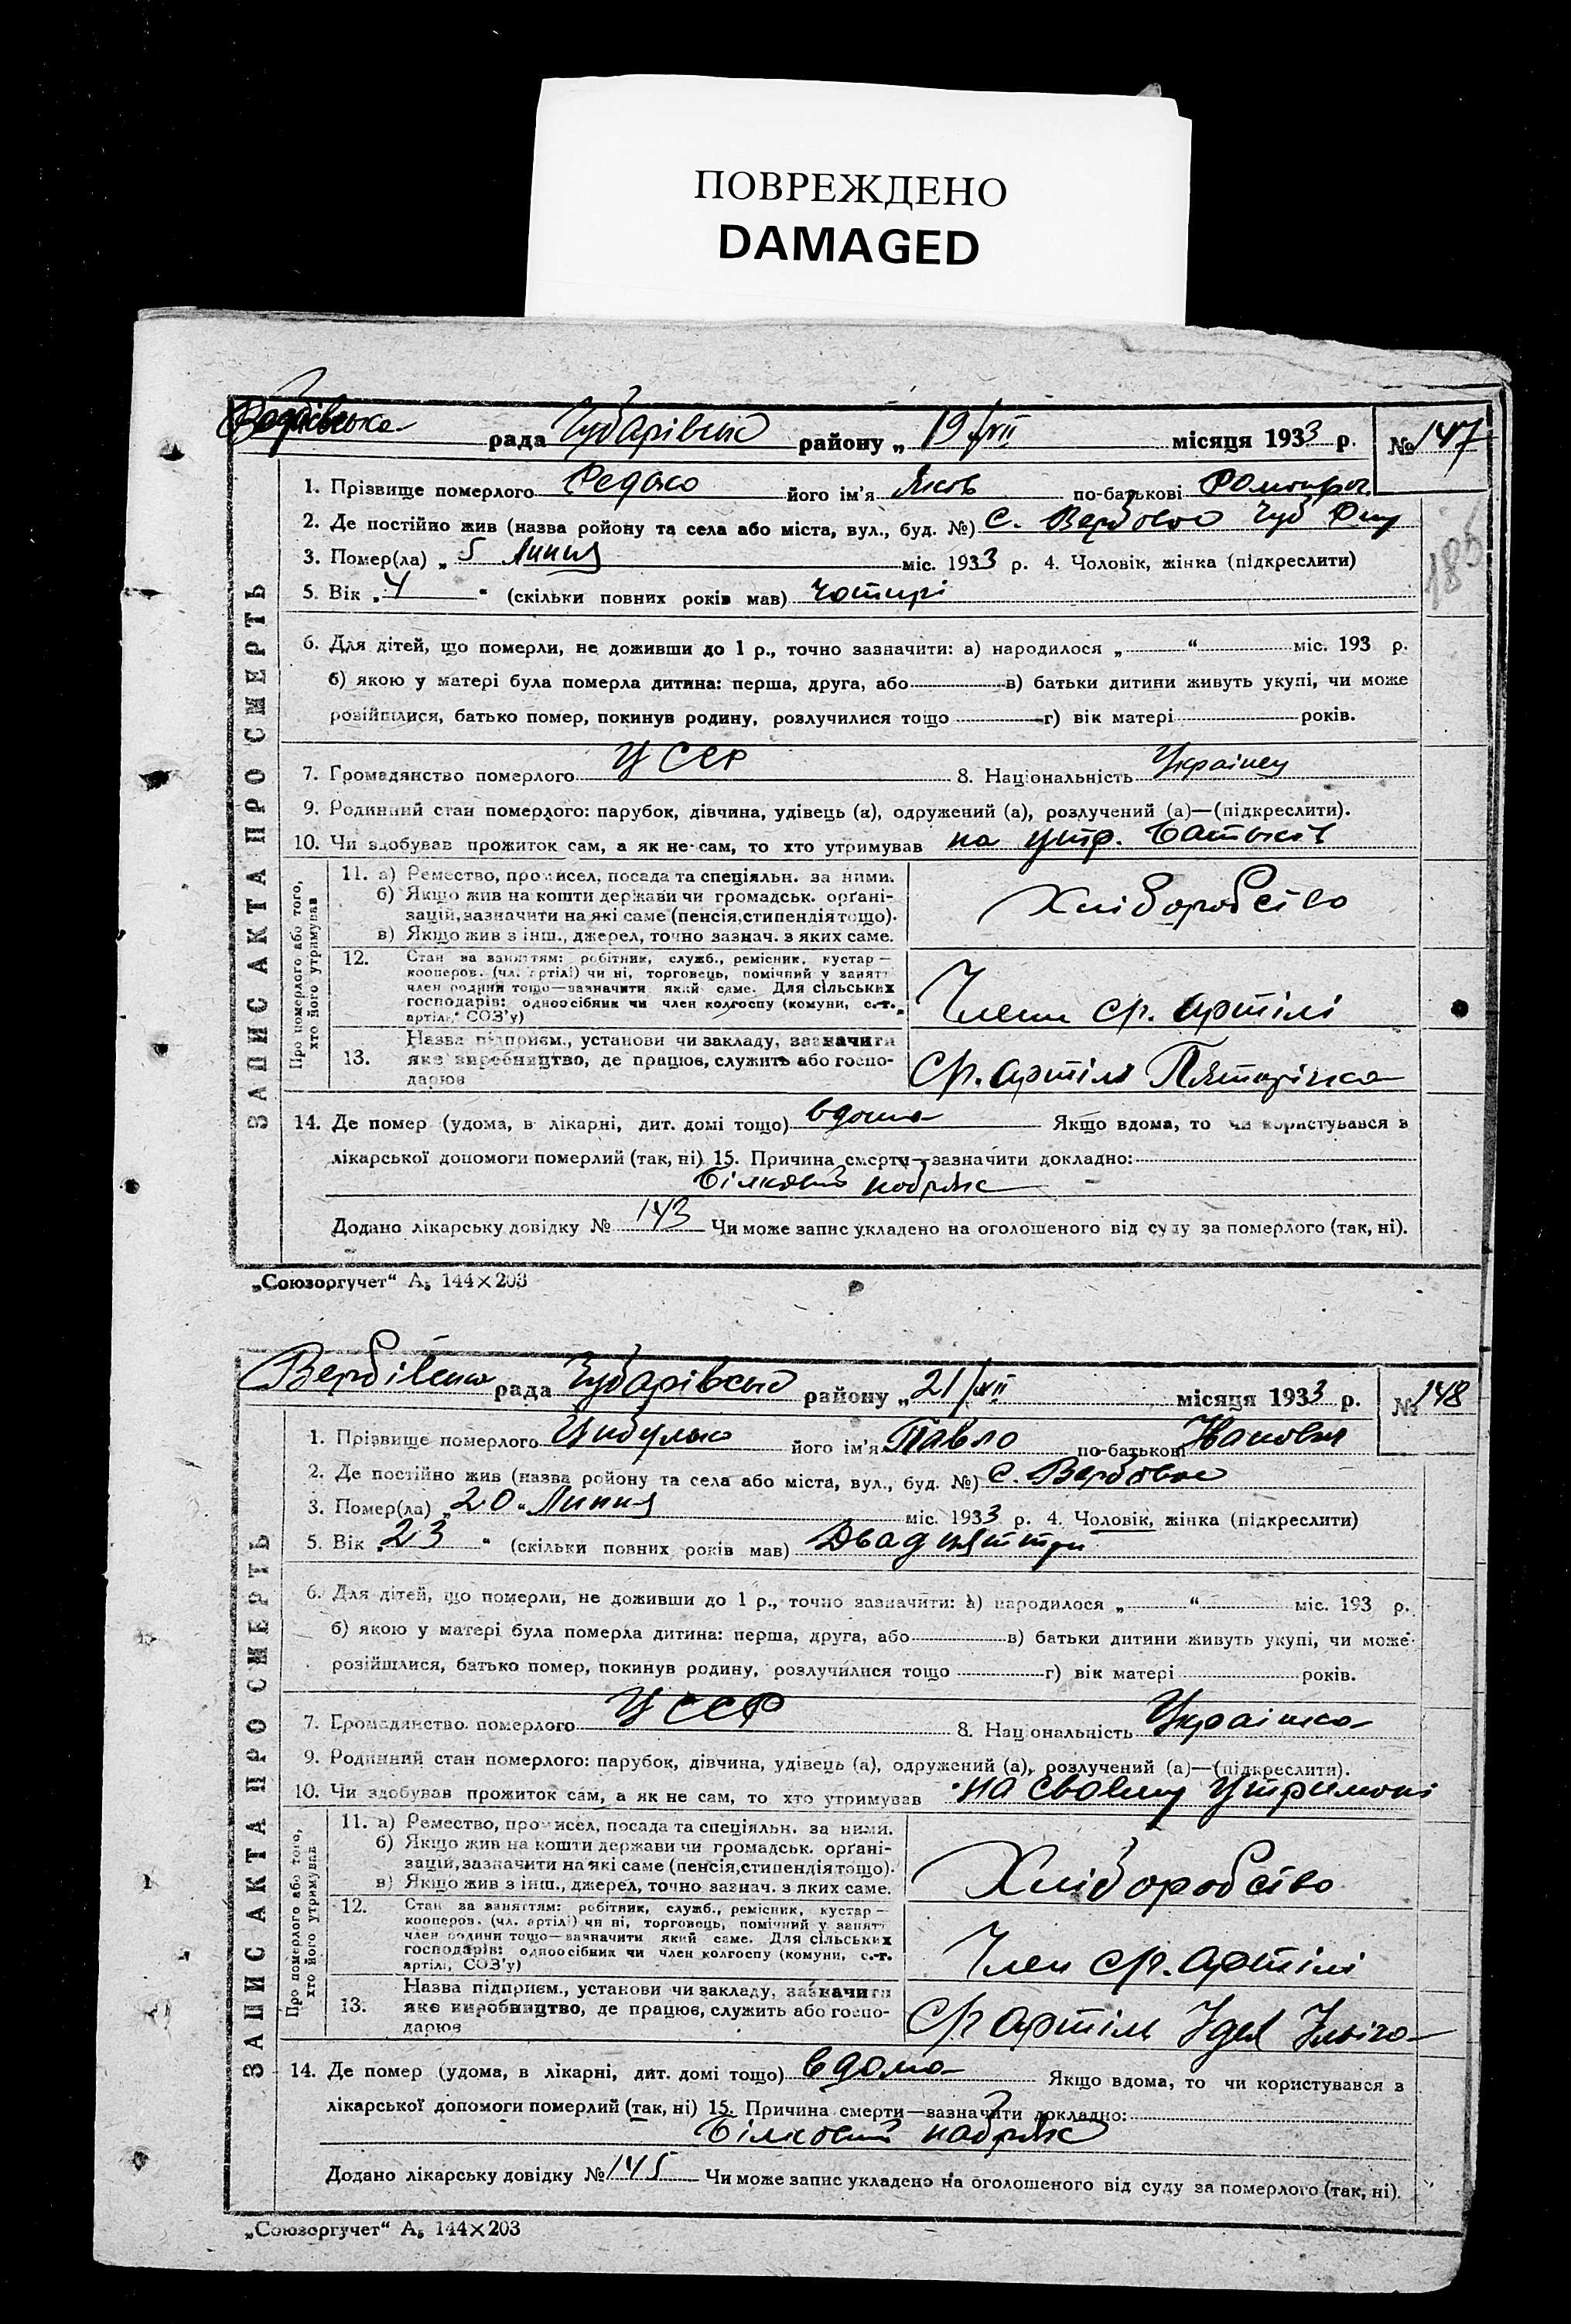 ПОВРЕЖДЕНО
DAMAGED
рада Чубарівськ району „ 19/VII місяця 1933 р. № 147
1. Прізвище померлого Редько його ім'я Яков по-батькові
2. Де постійно жив (назва ройону та села або міста, вул., буд. №) С. Вербовое Чуб
3. Помер(ла) „ 5 Липня міс. 1933 р. 4. Чоловік, жінка (підкреслити)
5. Вік „ 4 “ (скільки повних років мав) чотирі
185
6. Для дітей, що померли, не доживши до 1 р., точно зазначити: а) народилося „ “ міс. 193 р.
б) якою у матері була померла дитина: перша, друга, або в) батьки дитини живуть укупі, чи може
розійшлися, батько помер, покинув родину, розлучилися тощо г) вік матері років.
7. Громадянство померлого УССР 8. Національність Українец
9. Родинний стан померлого: парубок, дівчина, удівець (а), одружений (а), розлучений (а)—(підкреслити).
10. Чи здобував прожиток сам, а як не сам, то хто утримував на утр. батьків
ЗАПИС АКТА ПРО СМЕРТЬ
Про померлого або того, хто його утримував
11. а) Ремество, промисел, посада та спеціяльн. за ними.
б) Якщо жив на кошти держави чи громадськ. орґані-
зацій, зазначити на які саме (пенсія, стипендія тощо).
в) Якщо жив з інш., джерел, точно зазнач. з яких саме.
Хліборобство
12. Стан за заняттям: робітник, служб., ремісник, кустар—
кооперов. (чл. артілі) чи ні, торговець, помічний у занятт
член родини тощо—зазначити який саме. Для сільських
господарів: одноосібник чи член колгоспу (комуни, с.-г.
артілі, СОЗ'у)
Член ср. артілі
13. Назва підприєм., установи чи закладу, зазначити
яке виробництво, де працює, служить або госпо-
дарює
Ср. артіль Пятирічка
14. Де помер (удома, в лікарні, дит. домі тощо) вдома Якщо вдома, то чи користувався з
лікарської допомоги померлий (так, ні) 15. Причина смерти—зазначити докладно:
Білковий набряк
Додано лікарську довідку № 143 Чи може запис укладено на оголошеного від суду за померлого (так, ні).
„Союзоргучет“ А5 144×203
Вербівська рада Чубарівськ району „ 21/VII місяця 1933 р. № 148
1. Прізвище померлого Цибулько його ім'я Павло по-батькові Іванович
2. Де постійно жив (назва ройону та села або міста, вул., буд. №) С. Вербовое
3. Помер(ла) „ 20 “ Липня міс. 1933 р. 4. Чоловік, жінка (підкреслити)
5. Вік „ 23 “ (скільки повних років мав) Двадцять три
6. Для дітей, що померли, не доживши до 1 р., точно зазначити: а) народилося „ “ міс. 193 р.
б) якою у матері була померла дитина: перша, друга, або в) батьки дитини живуть укупі, чи може
розійшлися, батько помер, покинув родину, розлучилися тощо г) вік матері років.
7. Громадянство померлого УССР 8. Національність Українка
9. Родинний стан померлого: парубок, дівчина, удівець (а), одружений (а), розлучений (а)—(підкреслити).
10. Чи здобував прожиток сам, а як не сам, то хто утримував на своему утримані
ЗАПИС АКТА ПРО СМЕРТЬ
Про померлого або того, хто його утримував
11. а) Ремество, промисел, посада та спеціяльн. за ними.
б) Якщо жив на кошти держави чи громадськ. орґані-
зацій, зазначити на які саме (пенсія, стипендія тощо).
в) Якщо жив з інш., джерел, точно зазнач. з яких саме.
Хліборобство
12. Стан за заняттям: робітник, служб., ремісник, кустар—
кооперов. (чл. артілі) чи ні, торговець, помічний у занятт
член родини тощо—зазначити який саме. Для сільських
господарів: одноосібник чи член колгоспу (комуни, с.-г.
артілі, СОЗ'у)
Член ср. артілі
13. Назва підприєм., установи чи закладу, зазначити
яке виробництво, де працює, служить або госпо-
дарює
Ср артіль Ілліча
14. Де помер (удома, в лікарні, дит. домі тощо) вдома Якщо вдома, то чи користувався з
лікарської допомоги померлий (так, ні) 15. Причина смерти—зазначити докладно:
Білковий набряк
Додано лікарську довідку № 145 Чи може запис укладено на оголошеного від суду за померлого (так, ні).
„Союзоргучет“ А5 144×203